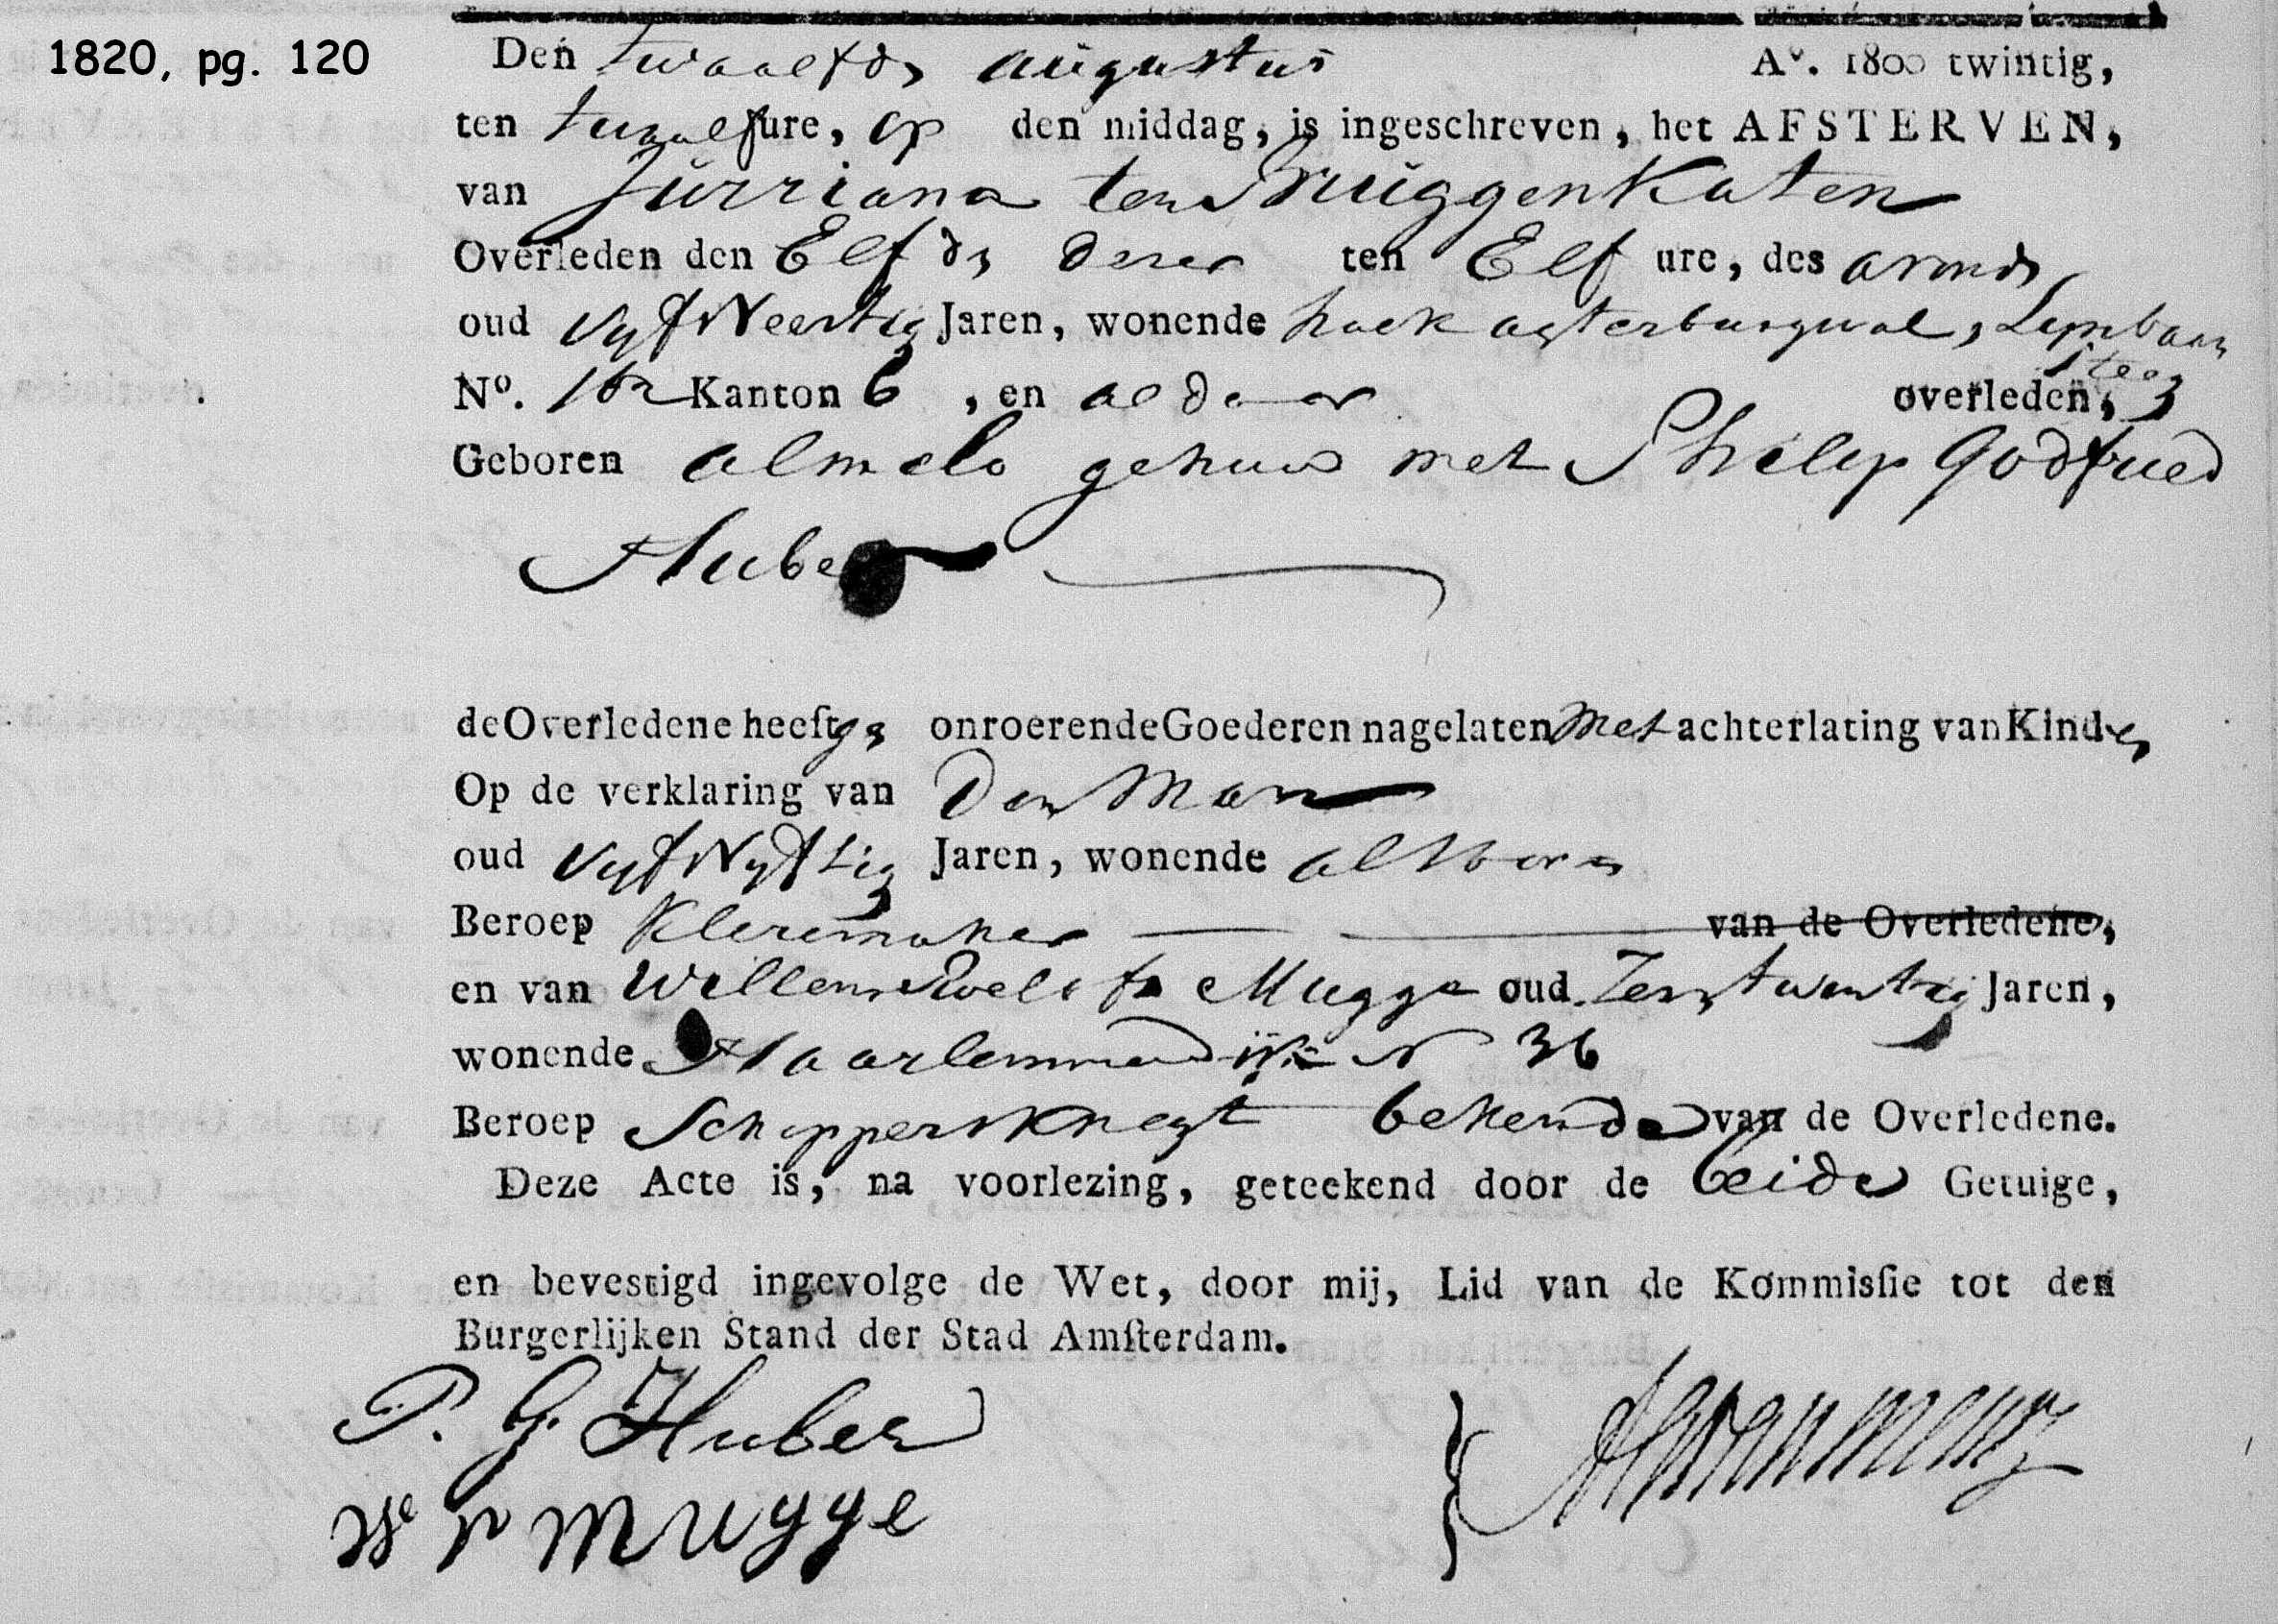 1820, pg. 120
Den twaalfde augustus Aº. 1800 twintig,
ten twaalf ure, op den middag, is ingeschreven, het AFSTERVEN,
van Jurriana ten Bruggenkaten
Overleden den Elfde dezer ten Elf ure, des avonds
oud vyf Veertig Jaren, wonende hoek agterburgwal, Lynbaan
steeg
Nº. 162 Kanton 6, en aldaar overleden,
Geboren almelo gehuwd met Philip Godfried
Huber
de Overledene heeft ge onroerende Goederen nagelaten Met achterlating van Kinders
Op de verklaring van Den Man
oud vyf Vyftig Jaren, wonende als voren
Beroep Kleremaker van de Overledene,
en van Willem Mugge oud Zesentwintig Jaren,
wonende Haarlemmerdijk N 36
Beroep Schippersknegt bekende van de Overledene.
Deze Acte is, na voorlezing, geteekend door de beide Getuige,
en bevestigd ingevolge de Wet, door mij, Lid van de Kommisſie tot den
Burgerlijken Stand der Stad Amſterdam.
P. G. Huber
W P Mugge